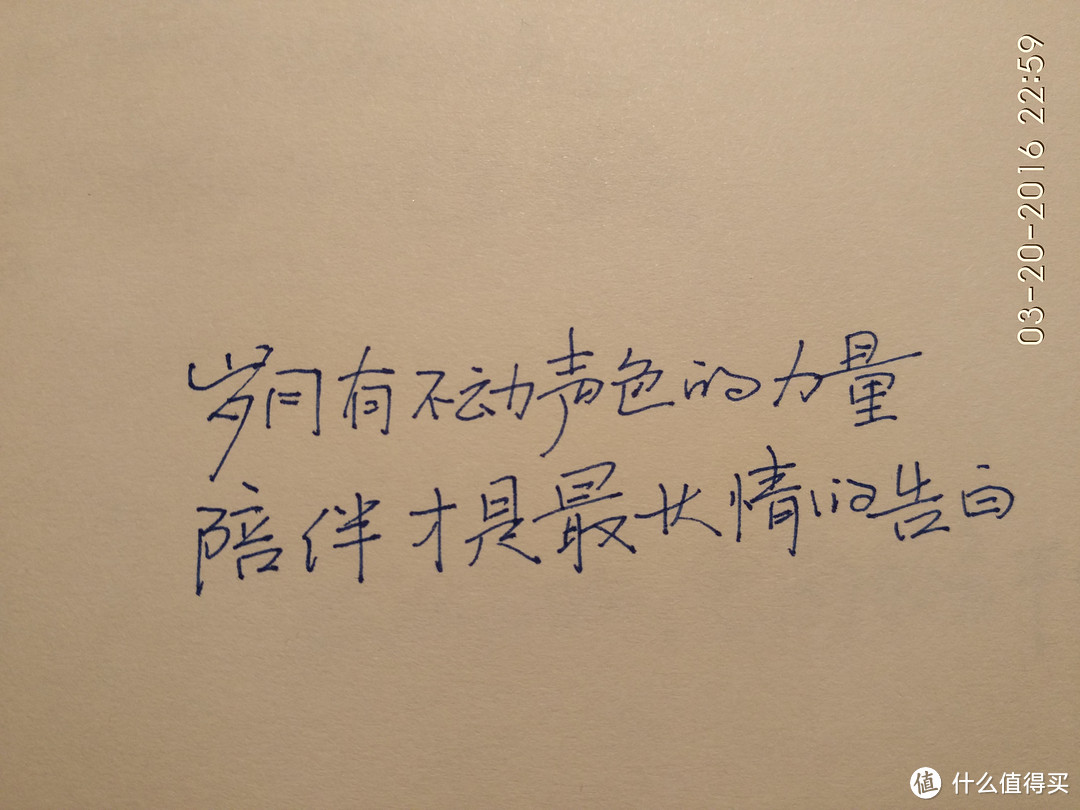 岁月有不动声色的力量
陪伴才是最长情的告白
03-20-2016 22:59
值 什么值得买